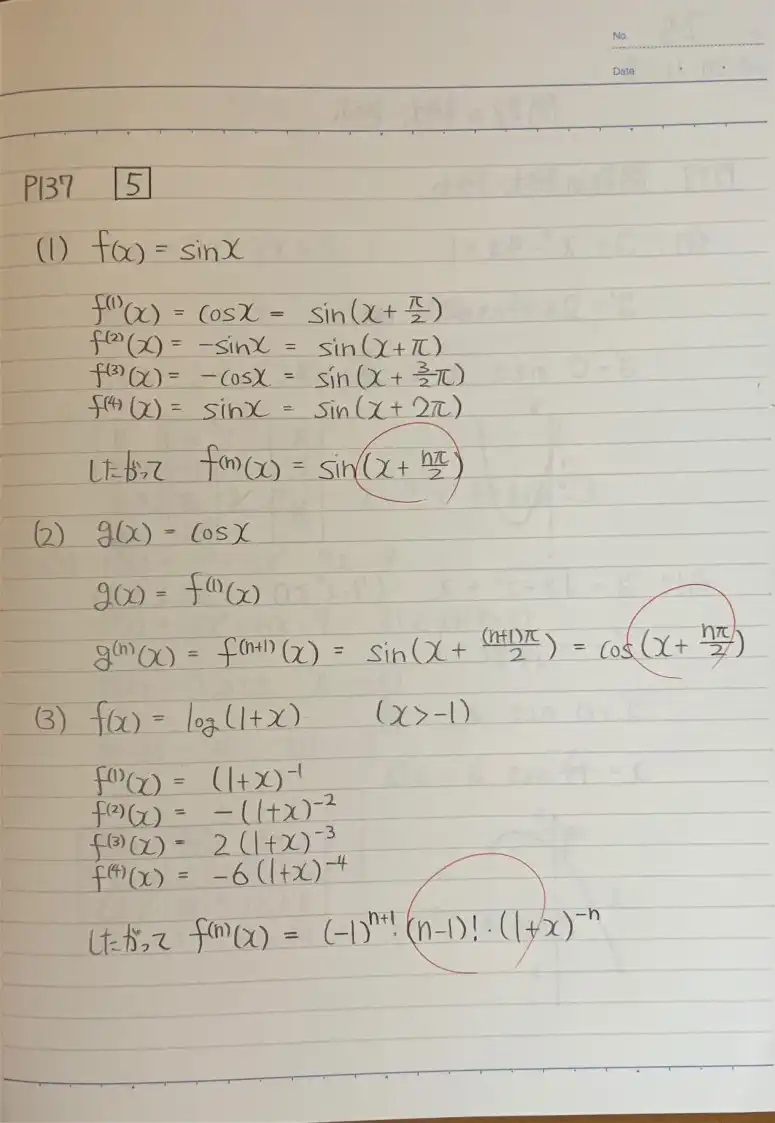 No.
Date
P137 5
(1) f(x) = sinx
f⁽¹⁾(x) = cosx = sin(x+π/2)
f⁽²⁾(x) = -sinx = sin(x+π)
f⁽³⁾(x) = -cosx = sin(x+3/2π)
f⁽⁴⁾(x) = sinx = sin(x+2π)
したがって f⁽ⁿ⁾(x) = sin(x+nπ/2)
(2) g(x) = cosx
g(x) = f⁽¹⁾(x)
g⁽ⁿ⁾(x) = f⁽ⁿ⁺¹⁾(x) = sin(x+(n+1)π/2) = cos(x+nπ/2)
(3) f(x) = log(1+x) (x>-1)
f⁽¹⁾(x) = (1+x)⁻¹
f⁽²⁾(x) = -(1+x)⁻²
f⁽³⁾(x) = 2(1+x)⁻³
f⁽⁴⁾(x) = -6(1+x)⁻⁴
したがって f⁽ⁿ⁾(x) = (-1)ⁿ⁺¹·(n-1)!·(1+x)⁻ⁿ